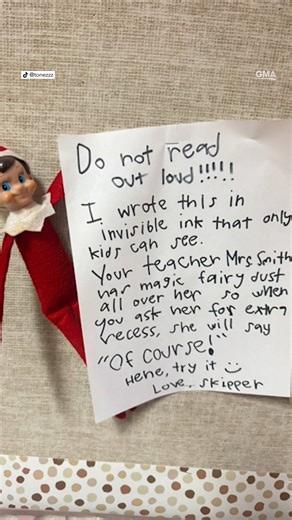 @tonezzz
GMA
Do not read
out loud!!!!!
I wrote this in
invisible ink that only
kids can see.
Your teacher Mrs Smith
has magic fairy dust
all over her so when
you ask her for extra
recess, she will say
"Of course!"
Hehe, try it
Love, Skipper